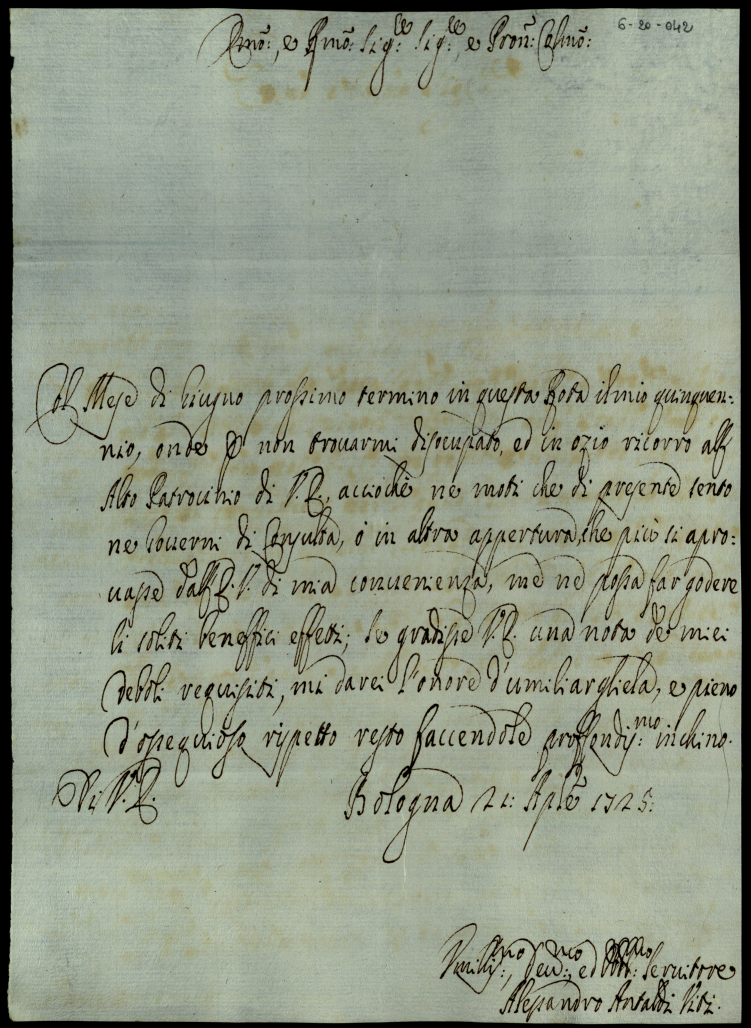 6-20-042
Emo:, e Rmo: Sig:re Sig:re, e Pron: Colmo:
Col Mese di Giugno prossimo termino in questa Rota il mio quinquen:
nio, onde p non trovarmi disocupato, ed in ozio ricorro all'
Alto Patrocinio di V.E., acciochè ne moti che di presente sento
ne Governi di Consulta, ò in altra appertura, che più si apro:
vasse dall'E.V. di mia convenienza, me ne possa far godere
li soliti beneffici effetti; Se gradisse V.E. una nota de miei
deboli requisiti, mi darei l'onore d'umiliargliela, e pieno
d'ossequioso rispetto resto faccendole proffondis:mo inchino.
Di V.E.
Bologna 21: Aple 1725:
Umilis:mo, Dev:mo, ed Obbl:mo Servitore
Alessandro Antaldi Viti.